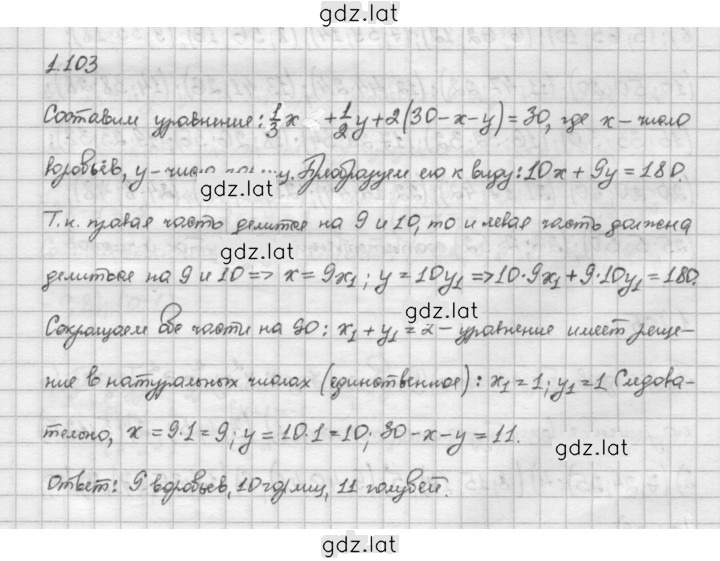 gdz.lat
1.103
Составим уравнение: 1/3 x + 1/2 y + 2(30-x-y) = 30, где x - число
воробьёв, y - число Преобразуем его к виду: 10x + 9y = 180.
gdz.lat
Т.к. правая часть делится на 9 и 10, то и левая часть должна
gdz.lat
делиться на 9 и 10 => x = 9x₁; y = 10y₁ => 10·9x₁ + 9·10y₁ = 180.
gdz.lat
Сокращаем обе части на 90: x₁ + y₁ = 2 - уравнение имеет реше-
ние в натуральных числах (единственное): x₁ = 1; y₁ = 1. Следова-
тельно, x = 9·1 = 9; y = 10·1 = 10; 30-x-y = 11.
gdz.lat
Ответ: 9 воробьев, 10 горлиц, 11 голубей.
gdz.lat